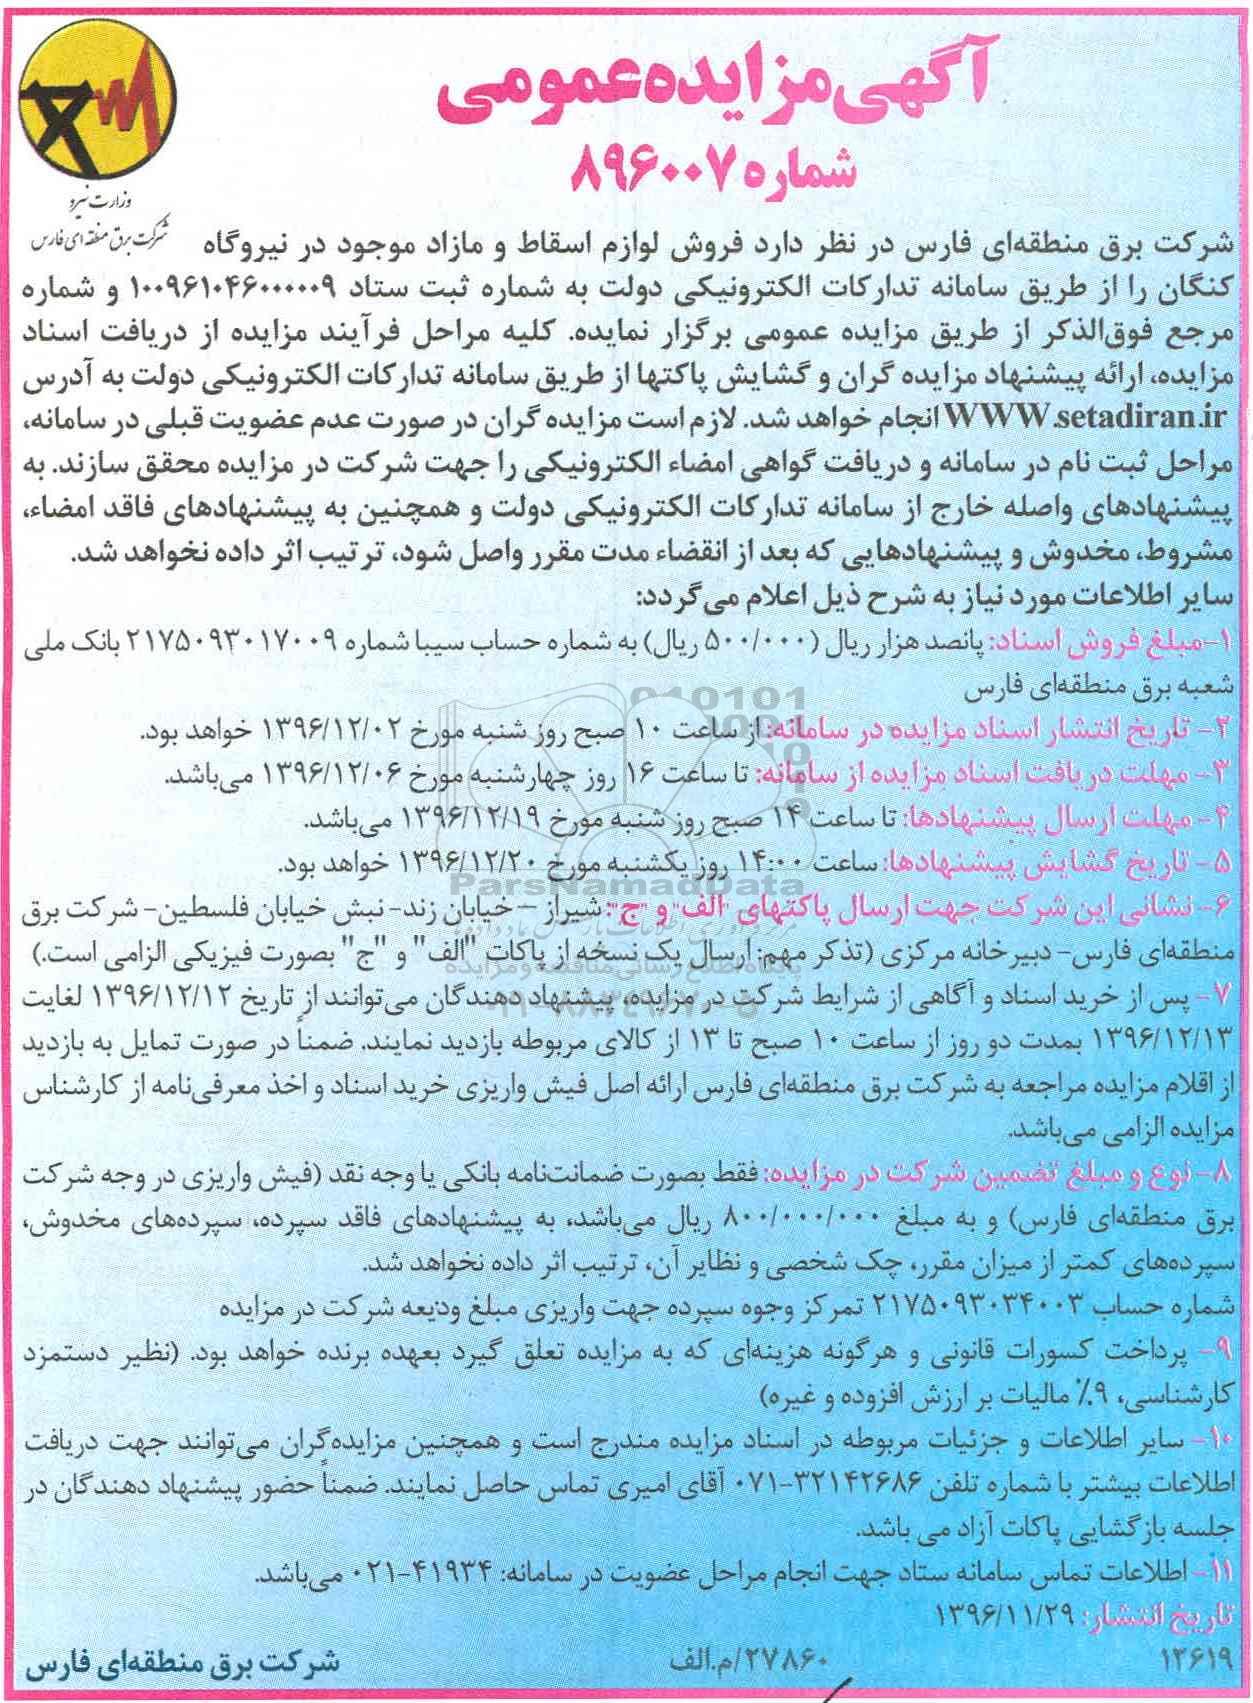 آگهی مزایده عمومی
شماره ۸۹۶۰۰۷
وزارت نیرو
شرکت برق منطقه ای فارس
شرکت برق منطقه‌ای فارس در نظر دارد فروش لوازم اسقاط و مازاد موجود در نیروگاه
کنگان را از طریق سامانه تدارکات الکترونیکی دولت به شماره ثبت ستاد ۱۰۰۹۶۱۰۴۶۰۰۰۰۰۹ و شماره
مرجع فوق‌الذکر از طریق مزایده عمومی برگزار نمایده. کلیه مراحل فرآیند مزایده از دریافت اسناد
مزایده، ارائه پیشنهاد مزایده گران و گشایش پاکتها از طریق سامانه تدارکات الکترونیکی دولت به آدرس
WWW.setadiran.ir انجام خواهد شد. لازم است مزایده گران در صورت عدم عضویت قبلی در سامانه،
مراحل ثبت نام در سامانه و دریافت گواهی امضاء الکترونیکی را جهت شرکت در مزایده محقق سازند. به
پیشنهادهای واصله خارج از سامانه تدارکات الکترونیکی دولت و همچنین به پیشنهادهای فاقد امضاء،
مشروط، مخدوش و پیشنهادهایی که بعد از انقضاء مدت مقرر واصل شود، ترتیب اثر داده نخواهد شد.
سایر اطلاعات مورد نیاز به شرح ذیل اعلام می‌گردد:
۱-مبلغ فروش اسناد: پانصد هزار ریال (۵۰۰/۰۰۰ ریال) به شماره حساب سیبا شماره ۲۱۷۵۰۹۳۰۱۷۰۰۹ بانک ملی
شعبه برق منطقه‌ای فارس
۲- تاریخ انتشار اسناد مزایده در سامانه: از ساعت ۱۰ صبح روز شنبه مورخ ۱۳۹۶/۱۲/۰۲ خواهد بود.
۳- مهلت دریافت اسناد مزایده از سامانه: تا ساعت ۱۶ روز چهارشنبه مورخ ۱۳۹۶/۱۲/۰۶ می‌باشد.
۴- مهلت ارسال پیشنهادها: تا ساعت ۱۴ صبح روز شنبه مورخ ۱۳۹۶/۱۲/۱۹ می‌باشد.
۵- تاریخ گشایش پیشنهادها: ساعت ۱۴:۰۰ روز یکشنبه مورخ ۱۳۹۶/۱۲/۲۰ خواهد بود.
ParsNamadData
۶- نشانی این شرکت جهت ارسال پاکتهای "الف" و "ج": شیراز - خیابان زند- نبش خیابان فلسطین- شرکت برق
منطقه‌ای فارس- دبیرخانه مرکزی (تذکر مهم: ارسال یک نسخه از پاکات "الف" و "ج" بصورت فیزیکی الزامی است.)
پایگاه اطلاع رسانی مناقصه و مزایده
۷- پس از خرید اسناد و آگاهی از شرایط شرکت در مزایده، پیشنهاد دهندگان می‌توانند از تاریخ ۱۳۹۶/۱۲/۱۲ لغایت
۱۳۹۶/۱۲/۱۳ بمدت دو روز از ساعت ۱۰ صبح تا ۱۳ از کالای مربوطه بازدید نمایند. ضمناً در صورت تمایل به بازدید
از اقلام مزایده مراجعه به شرکت برق منطقه‌ای فارس ارائه اصل فیش واریزی خرید اسناد و اخذ معرفی‌نامه از کارشناس
مزایده الزامی می‌باشد.
۸- نوع و مبلغ تضمین شرکت در مزایده: فقط بصورت ضمانت‌نامه بانکی یا وجه نقد (فیش واریزی در وجه شرکت
برق منطقه‌ای فارس) و به مبلغ ۸۰۰/۰۰۰/۰۰۰ ریال می‌باشد، به پیشنهادهای فاقد سپرده، سپرده‌های مخدوش،
سپرده‌های کمتر از میزان مقرر، چک شخصی و نظایر آن، ترتیب اثر داده نخواهد شد.
شماره حساب ۲۱۷۵۰۹۳۰۳۴۰۰۳ تمرکز وجوه سپرده جهت واریزی مبلغ ودیعه شرکت در مزایده
۹- پرداخت کسورات قانونی و هرگونه هزینه‌ای که به مزایده تعلق گیرد بعهده برنده خواهد بود. (نظیر دستمزد
کارشناسی، ۹٪ مالیات بر ارزش افزوده و غیره)
۱۰- سایر اطلاعات و جزئیات مربوطه در اسناد مزایده مندرج است و همچنین مزایده‌گران می‌توانند جهت دریافت
اطلاعات بیشتر با شماره تلفن ۳۲۱۴۲۶۸۶-۰۷۱ آقای امیری تماس حاصل نمایند. ضمناً حضور پیشنهاد دهندگان در
جلسه بازگشایی پاکات آزاد می باشد.
۱۱- اطلاعات تماس سامانه ستاد جهت انجام مراحل عضویت در سامانه: ۴۱۹۳۴-۰۲۱ می‌باشد.
تاریخ انتشار: ۱۳۹۶/۱۱/۲۹
۱۲۶۱۹
۲۷۸۶۰/م.الف
شرکت برق منطقه‌ای فارس